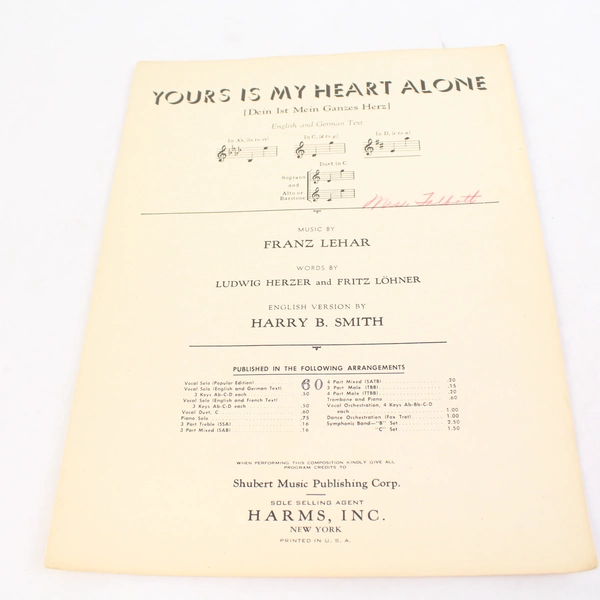 YOURS IS MY HEART ALONE
[Dein Ist Mein Ganzes Herz]
English and German Text
Duet in C
Soprano
and
Alto or
Baritone
Mrs.
MUSIC BY
FRANZ LEHAR
WORDS BY
LUDWIG HERZER and FRITZ LÖHNER
ENGLISH VERSION BY
HARRY B. SMITH
PUBLISHED IN THE FOLLOWING ARRANGEMENTS
Vocal Solo (Popular Edition)
60
Vocal Solo (English and German Text)
3 Keys Ab-C-D each .50
Vocal Solo (English and French Text)
3 Keys Ab-C-D each .50
Vocal Duet, C .60
Piano Solo .75
3 Part Treble (SSA) .16
3 Part Mixed (SAB) .16
4 Part Mixed (SATB) .20
3 Part Male (TBB) .15
4 Part Male (TTBB) .20
Trombone and Piano .60
Vocal Orchestration, 4 Keys Ab-Bb-C-D
each 1.00
Dance Orchestration (Fox Trot) 1.00
Symphonic Band—"B" Set 2.50
"C" Set 1.50
WHEN PERFORMING THIS COMPOSITION KINDLY GIVE ALL
PROGRAM CREDITS TO
Shubert Music Publishing Corp.
SOLE SELLING AGENT
HARMS, INC.
NEW YORK
PRINTED IN U. S. A.